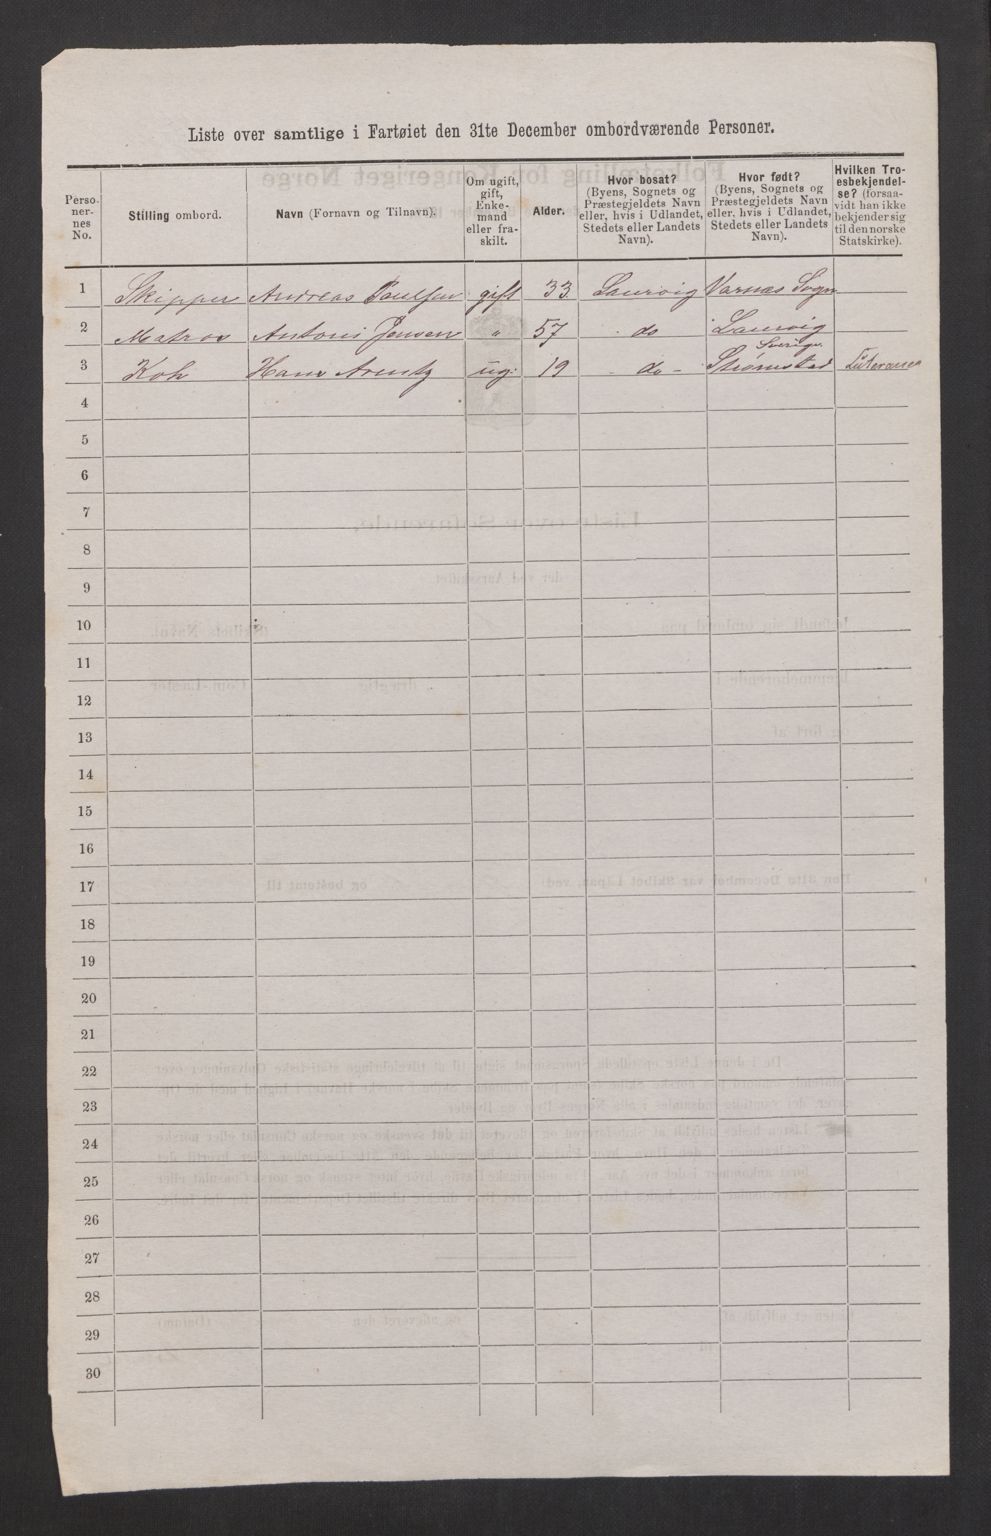 Liste over samtlige i Fartøiet den 31te December ombordværende Personer.
Perso-
ner-
nes
No.
Stilling ombord.
Navn (Fornavn og Tilnavn).
Om ugift,
gift,
Enke-
mand
eller fra-
skilt.
Alder.
Hvor bosat?
(Byens, Sognets og
Præstegjeldets Navn
eller, hvis i Udlandet,
Stedets eller Landets
Navn).
Hvor født?
(Byens, Sognets og
Præstegjeldets Navn
eller, hvis i Udlandet,
Stedets eller Landets
Navn).
Hvilken Tro-
esbekjendel-
se? (forsaa-
vidt han ikke
bekjender sig
til den norske
Statskirke).
1 Skipper Andreas Paulsen gift 33 Laurvig Varnæs Sogn
2 Matros Antoni Jensen " 57 do Laurvig
Sverige
3 Kok Hans Arentz ug. 19 do - Strømstad
4
5
6
7
8
9
10
11
12
13
14
15
16
17
18
19
20
21
22
23
24
25
26
27
28
29
30